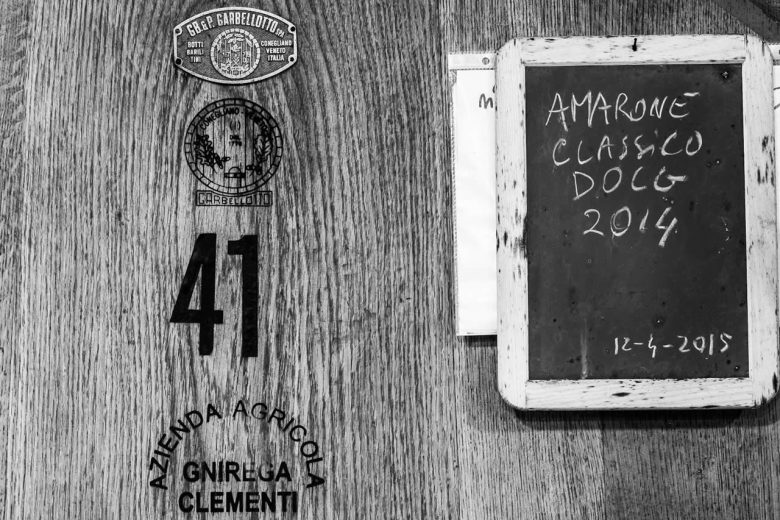 GB.&P. GARBELLOTTO SPA
BOTTI
BARILI
TINI
CONEGLIANO
VENETO
ITALIA
CONEGLIANO VENETO
GARBELLOTTO
41
AZIENDA AGRICOLA
GNIREGA
CLEMENTI
AMARONE
CLASSICO
DOCG
2014
12-4-2015